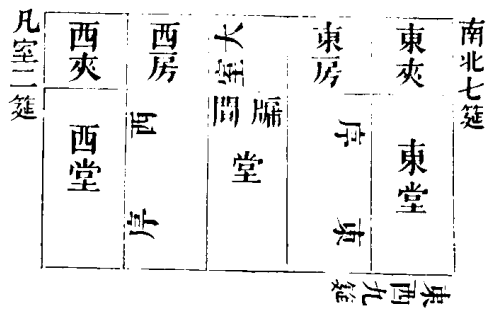 南北七筵
東夾
東堂
東房
東序
大室
牖
堂
西房
西序
西夾
西堂
凡室二筵
東西九筵